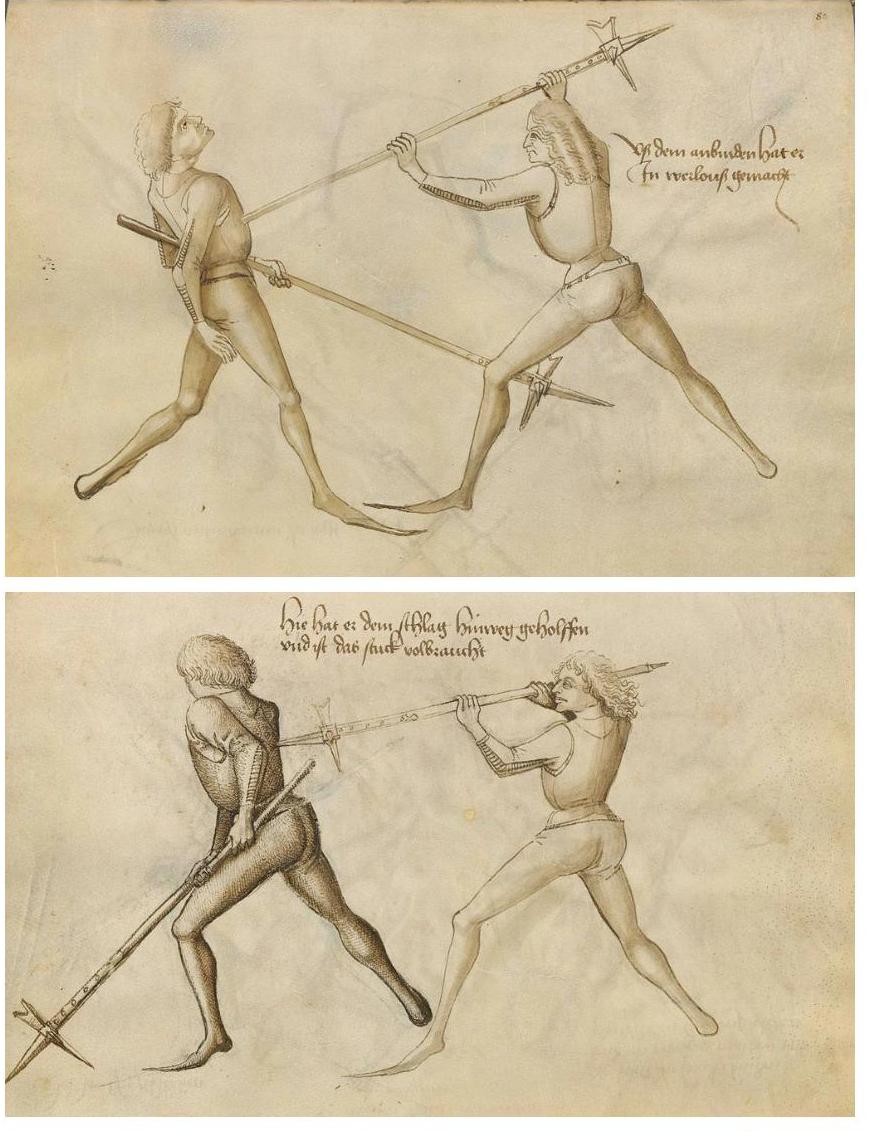 80
Vß dem anbinden hat er
In werlouß gemacht
Hie hat er dem schlag hinweg geholffen
vnd ist das stuck volbraucht